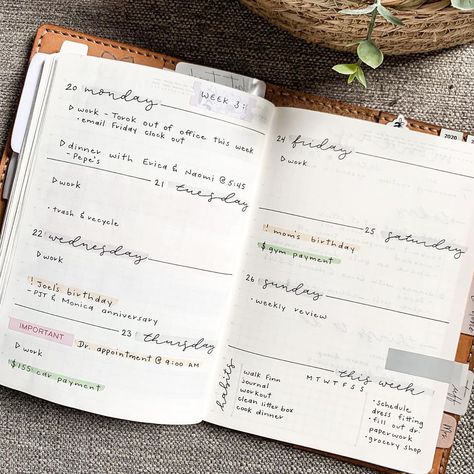 WEEK 3:
20 monday
▷ work - Torok out of office this week
• email Friday clock out
▷ dinner with Erica & Naomi @ 5:45
- Pepe's
21 tuesday
▷ work
• trash & recycle
22 wednesday
▷ work
! Joel's birthday
- PJT & Monica anniversary
23 thursday
IMPORTANT
Dr. appointment @ 9:00 AM
▷ work
$155 car payment
24 friday
▷ work
25 saturday
! mom's birthday
$ gym payment
26 sunday
• weekly review
habits
M T W T F S S
walk Finn
journal
workout
clean litter box
cook dinner
this week
• schedule
dress fitting
• fill out dr.
paperwork
• grocery shop
2020